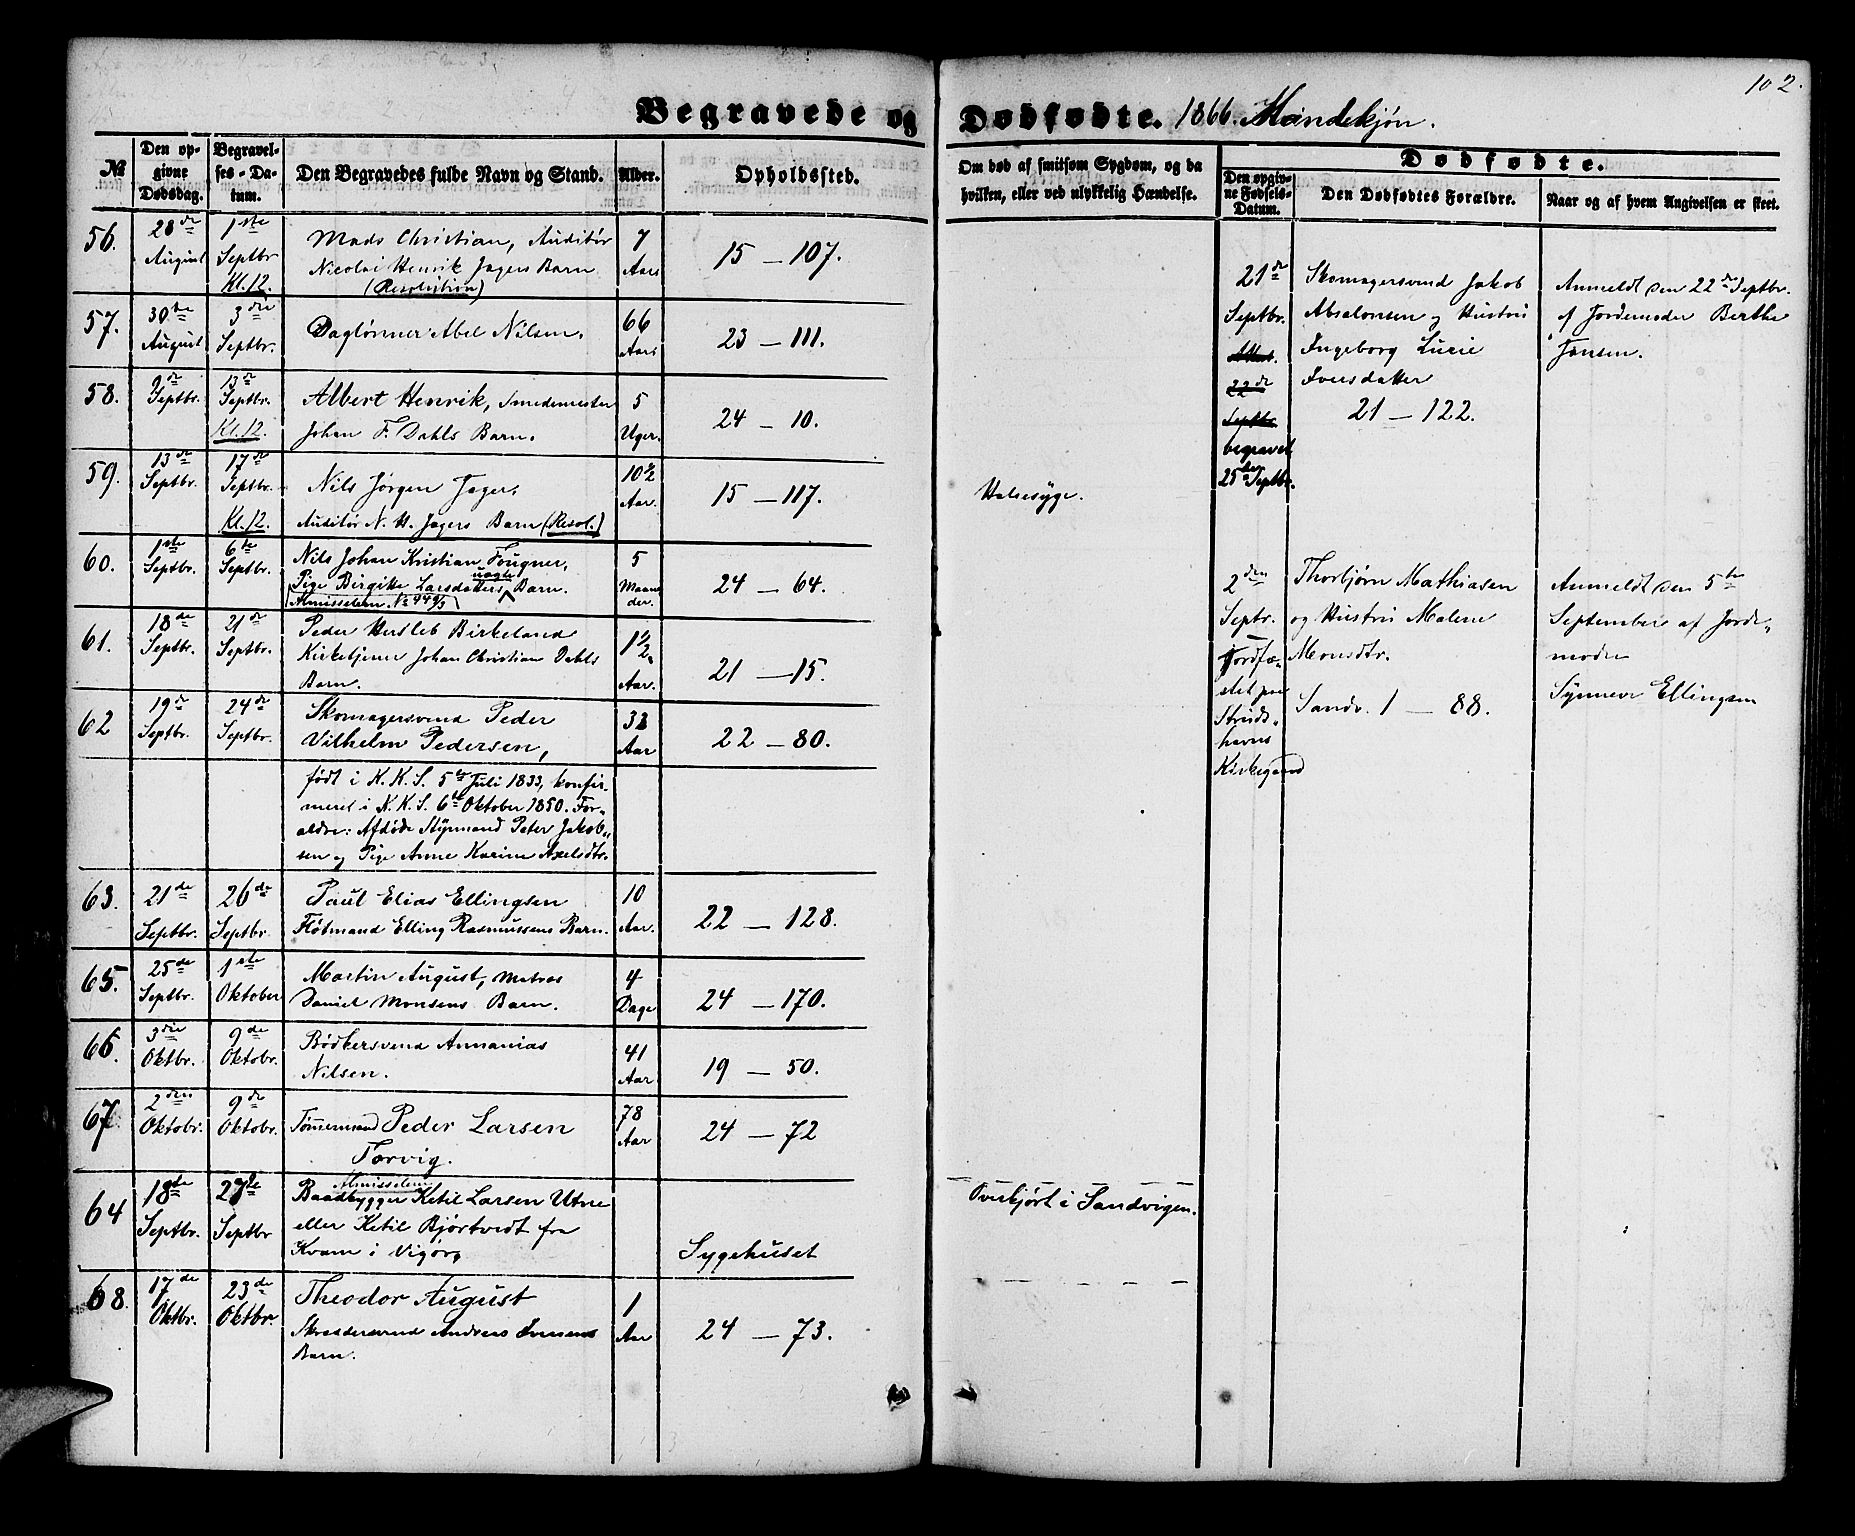 102.
Begravede og Dødfødte. 1866. Mandekjøn.
№
Den opgivne Dødsdag.
Begravelses-Datum.
Den Begravedes fulde Navn og Stand.
Alder.
Opholdssted.
Om død af smitsom Sygdom, og da hvilken, eller ved ulykkelig Hændelse.
Dødfødte.
Den opgivne Fødsels-Datum.
Den Dødfødtes Forældre.
Naar og af hvem Angivelsen er skeet.
56.
28de
August
1ste
Septbr
Kl. 12.
Mads Christian, Auditør
Nicolai Henrik Jagers Barn
(Resolution)
7
Aars
15 — 107.
57.
30te
August
3die
Septbr.
Daglønner Abel Nilsen.
66
Aars
23 — 111.
58.
9de
Septbr.
13de
Septbr.
Kl. 12.
Albert Henrik, Smedemester
Johan F. Dahls Barn.
5
Uger.
24 — 10.
59.
13de
Septbr.
17de
Septbr.
Kl. 12.
Nils Jørgen Jager,
Auditør N. H. Jagers Barn (Resol.)
10½
Aar.
15 — 117.
Halssyge.
60.
1ste
Septbr.
6te
Septbr.
Nils Johan Kristian Fougner,
Pige Birgitte Larsdatters uægte Barn.
Almisselem. No 949/5
5
Maaneder.
24 — 64.
61.
18de
Septbr.
21de
Septbr.
Peder Hersleb Birkeland
Kirketjener Johan Christian Dahls
Barn.
1½
Aar.
21 — 15.
62
19de
Septbr.
24de
Septbr.
Skomagersvend Peder
Vilhelm Pedersen,
33
Aar
22 — 80.
født i K. K. S. 5te Juli 1833, konfir-
meret i N. K. S. 6te Oktober 1850. For-
ældre: Afdøde Styrmand Peter Jakob-
sen og Pige Anne Karine Axelsdtr.
63.
21de
Septbr.
26de
Septbr.
Paul Elias Ellingsen
Fløtmand Elling Rasmussens Barn.
10
Aar.
22 — 128.
65.
25de
Septbr.
1ste
Oktober
Martin August, Matros
Daniel Monsens Barn.
4
Dage
24 — 170.
66.
3die
Oktbr.
9de
Oktobr.
Bødkersvend Annanias
Nilsen.
41
Aar
19 — 50.
67.
2den
Oktobr.
9de
Oktobr.
Tømmermand Peder Larsen
Torvig.
78
Aar
24 — 72
64
18de
Septbr.
27de
Septbr
Almisselem
Baadbygger Ketil Larsen Utne
eller Ketil Bjørtvedt fra
Kvam i Vigørg
Sygehuset
Overkjørt i Sandvigen.
68.
17de
Oktbr.
23de
Oktbr.
Theodor August
Skreddersvend Andreas Iversens
Barn.
1
Aar
24 — 73.
21de
Septbr.
22de
Septbr.
begravet
25de Septbr.
Skomagersvend Jakob
Absalonsen og Hustru
Ingeborg Lucie
Iversdatter
21 — 122.
Anmeldt den 22de Septbr.
af Jordemoder Berthe
Jansen.
2den
Septr.
Jordfæ-
stet paa
Strids-
havns
Kirkegaard
Thorbjørn Mathiasen
og Hustru Malene
Monsdtr.
Sandv. 1 — 88.
Anmeldt den 5te
September af Jorde-
moder
Synneve Ellingsen